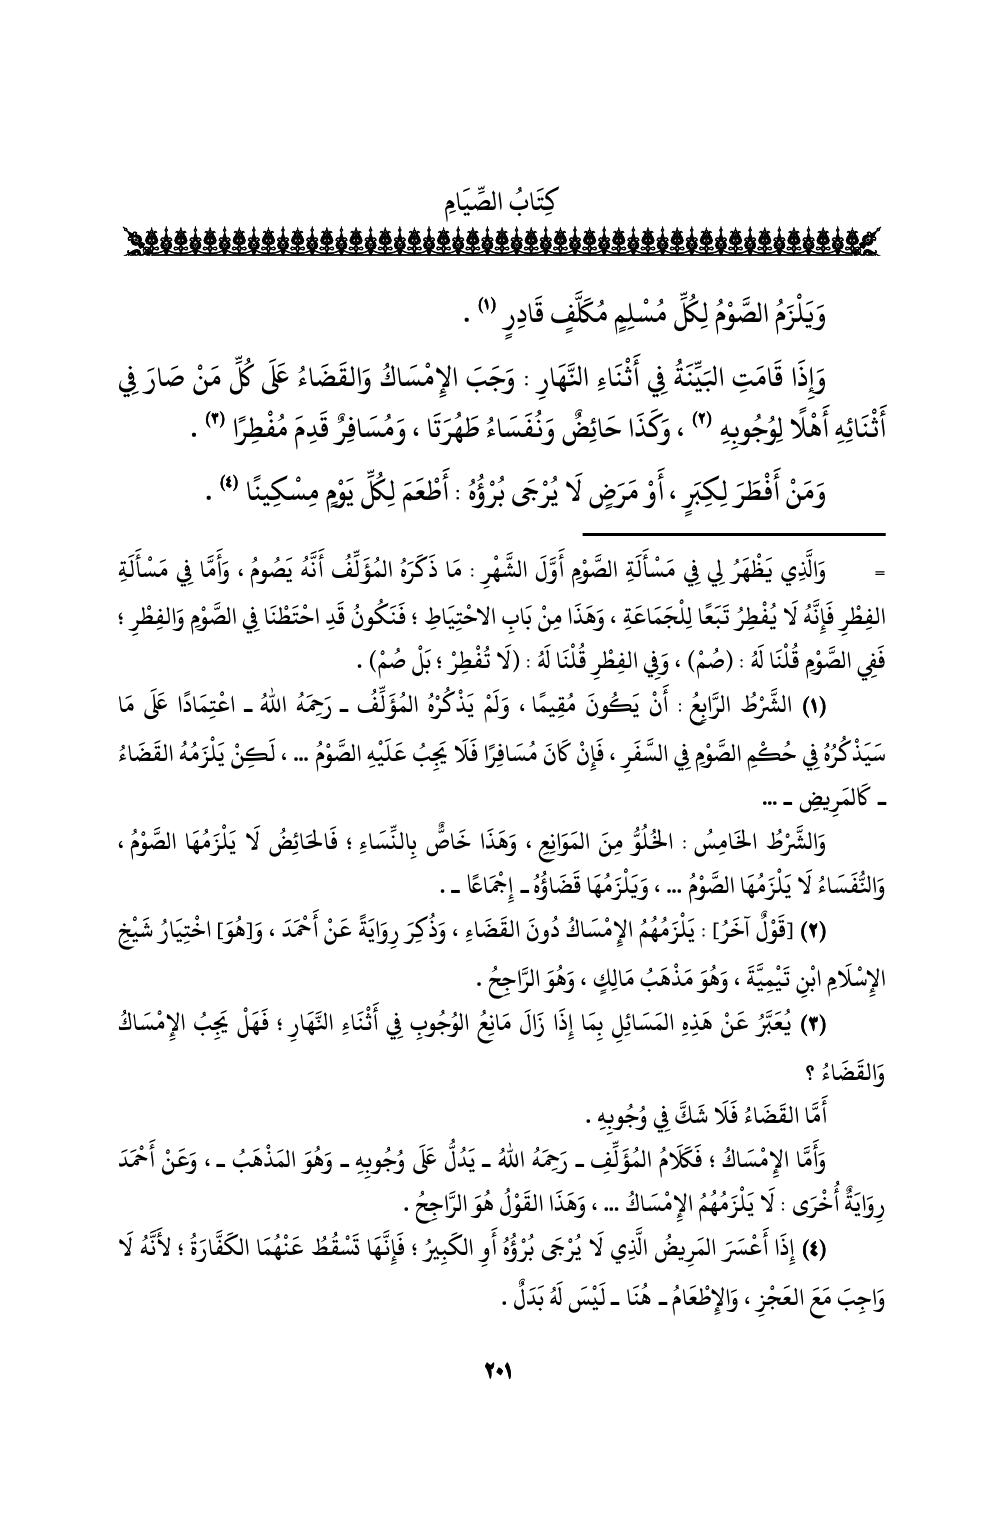 كِتَابُ الصِّيَامِ
وَيَلْزَمُ الصَّوْمُ لِكُلِّ مُسْلِمٍ مُكَلَّفٍ قَادِرٍ (١) .
وَإِذَا قَامَتِ البَيِّنَةُ فِي أَثْنَاءِ النَّهَارِ : وَجَبَ الإِمْسَاكُ وَالقَضَاءُ عَلَى كُلِّ مَنْ صَارَ فِي
أَثْنَائِهِ أَهْلًا لِوُجُوبِهِ (٢) ، وَكَذَا حَائِضٌ وَنُفَسَاءُ طَهُرَتَا ، وَمُسَافِرٌ قَدِمَ مُفْطِرًا (٣) .
وَمَنْ أَفْطَرَ لِكِبَرٍ ، أَوْ مَرَضٍ لَا يُرْجَى بُرْؤُهُ : أَطْعَمَ لِكُلِّ يَوْمٍ مِسْكِينًا (٤) .
= وَالَّذِي يَظْهَرُ لِي فِي مَسْأَلَةِ الصَّوْمِ أَوَّلَ الشَّهْرِ : مَا ذَكَرَهُ المُؤَلِّفُ أَنَّهُ يَصُومُ ، وَأَمَّا فِي مَسْأَلَةِ
الفِطْرِ فَإِنَّهُ لَا يُفْطِرُ تَبَعًا لِلْجَمَاعَةِ ، وَهَذَا مِنْ بَابِ الاحْتِيَاطِ ؛ فَنَكُونُ قَدِ احْتَطْنَا فِي الصَّوْمِ وَالفِطْرِ ؛
فَفِي الصَّوْمِ قُلْنَا لَهُ : (صُمْ) ، وَفِي الفِطْرِ قُلْنَا لَهُ : (لَا تُفْطِرْ ؛ بَلْ صُمْ) .
(١) الشَّرْطُ الرَّابِعُ : أَنْ يَكُونَ مُقِيمًا ، وَلَمْ يَذْكُرْهُ المُؤَلِّفُ ـ رَحِمَهُ اللهُ ـ اعْتِمَادًا عَلَى مَا
سَيَذْكُرُهُ فِي حُكْمِ الصَّوْمِ فِي السَّفَرِ ، فَإِنْ كَانَ مُسَافِرًا فَلَا يَجِبُ عَلَيْهِ الصَّوْمُ ... ، لَكِنْ يَلْزَمُهُ القَضَاءُ
ـ كَالمَرِيضِ ـ ...
وَالشَّرْطُ الخَامِسُ : الخُلُوُّ مِنَ المَوَانِعِ ، وَهَذَا خَاصٌّ بِالنِّسَاءِ ؛ فَالحَائِضُ لَا يَلْزَمُهَا الصَّوْمُ ،
وَالنُّفَسَاءُ لَا يَلْزَمُهَا الصَّوْمُ ... ، وَيَلْزَمُهَا قَضَاؤُهُ ـ إِجْمَاعًا ـ .
(٢) [قَوْلٌ آخَرُ] : يَلْزَمُهُمُ الإِمْسَاكُ دُونَ القَضَاءِ ، وَذُكِرَ رِوَايَةً عَنْ أَحْمَدَ ، وَ[هُوَ] اخْتِيَارُ شَيْخِ
الإِسْلَامِ ابْنِ تَيْمِيَّةَ ، وَهُوَ مَذْهَبُ مَالِكٍ ، وَهُوَ الرَّاجِحُ .
(٣) يُعَبَّرُ عَنْ هَذِهِ المَسَائِلِ بِمَا إِذَا زَالَ مَانِعُ الوُجُوبِ فِي أَثْنَاءِ النَّهَارِ ؛ فَهَلْ يَجِبُ الإِمْسَاكُ
وَالقَضَاءُ ؟
أَمَّا القَضَاءُ فَلَا شَكَّ فِي وُجُوبِهِ .
وَأَمَّا الإِمْسَاكُ ؛ فَكَلَامُ المُؤَلِّفِ ـ رَحِمَهُ اللهُ ـ يَدُلُّ عَلَى وُجُوبِهِ ـ وَهُوَ المَذْهَبُ ـ ، وَعَنْ أَحْمَدَ
رِوَايَةٌ أُخْرَى : لَا يَلْزَمُهُمُ الإِمْسَاكُ ... ، وَهَذَا القَوْلُ هُوَ الرَّاجِحُ .
(٤) إِذَا أَعْسَرَ المَرِيضُ الَّذِي لَا يُرْجَى بُرْؤُهُ أَوِ الكَبِيرُ ؛ فَإِنَّهَا تَسْقُطُ عَنْهُمَا الكَفَّارَةُ ؛ لأَنَّهُ لَا
وَاجِبَ مَعَ العَجْزِ ، وَالإِطْعَامُ ـ هُنَا ـ لَيْسَ لَهُ بَدَلٌ .
٢٠١